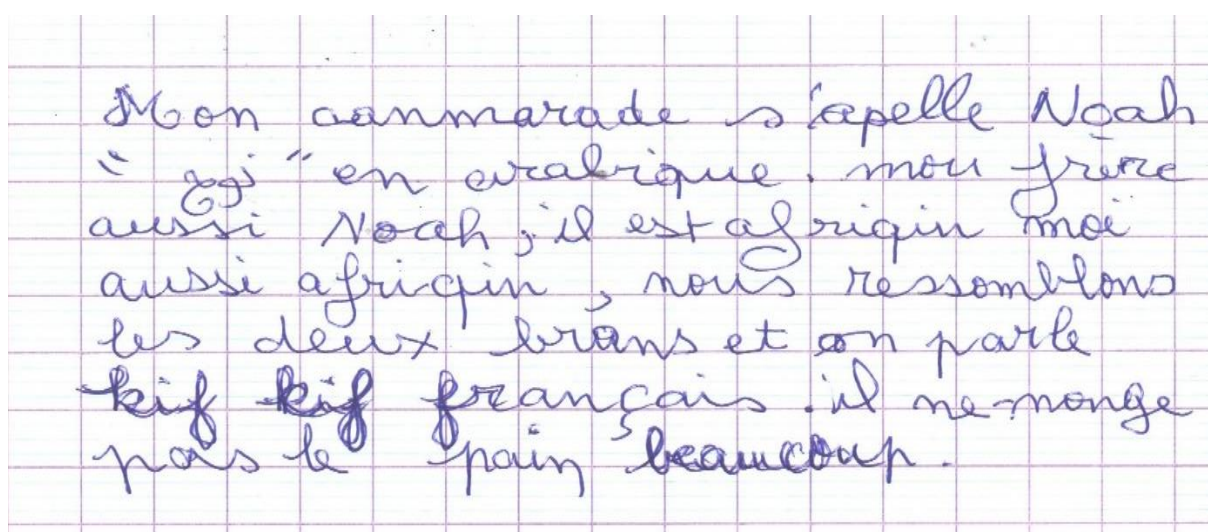 Mon canmarade s'apelle Noah
" " en arabique. mon frère
aussi Noah, il est afriqin moi
aussi afriqin, nous ressomblons
les deux brans et on parle
kif kif français. il ne monge
pas le pain beaucoup.